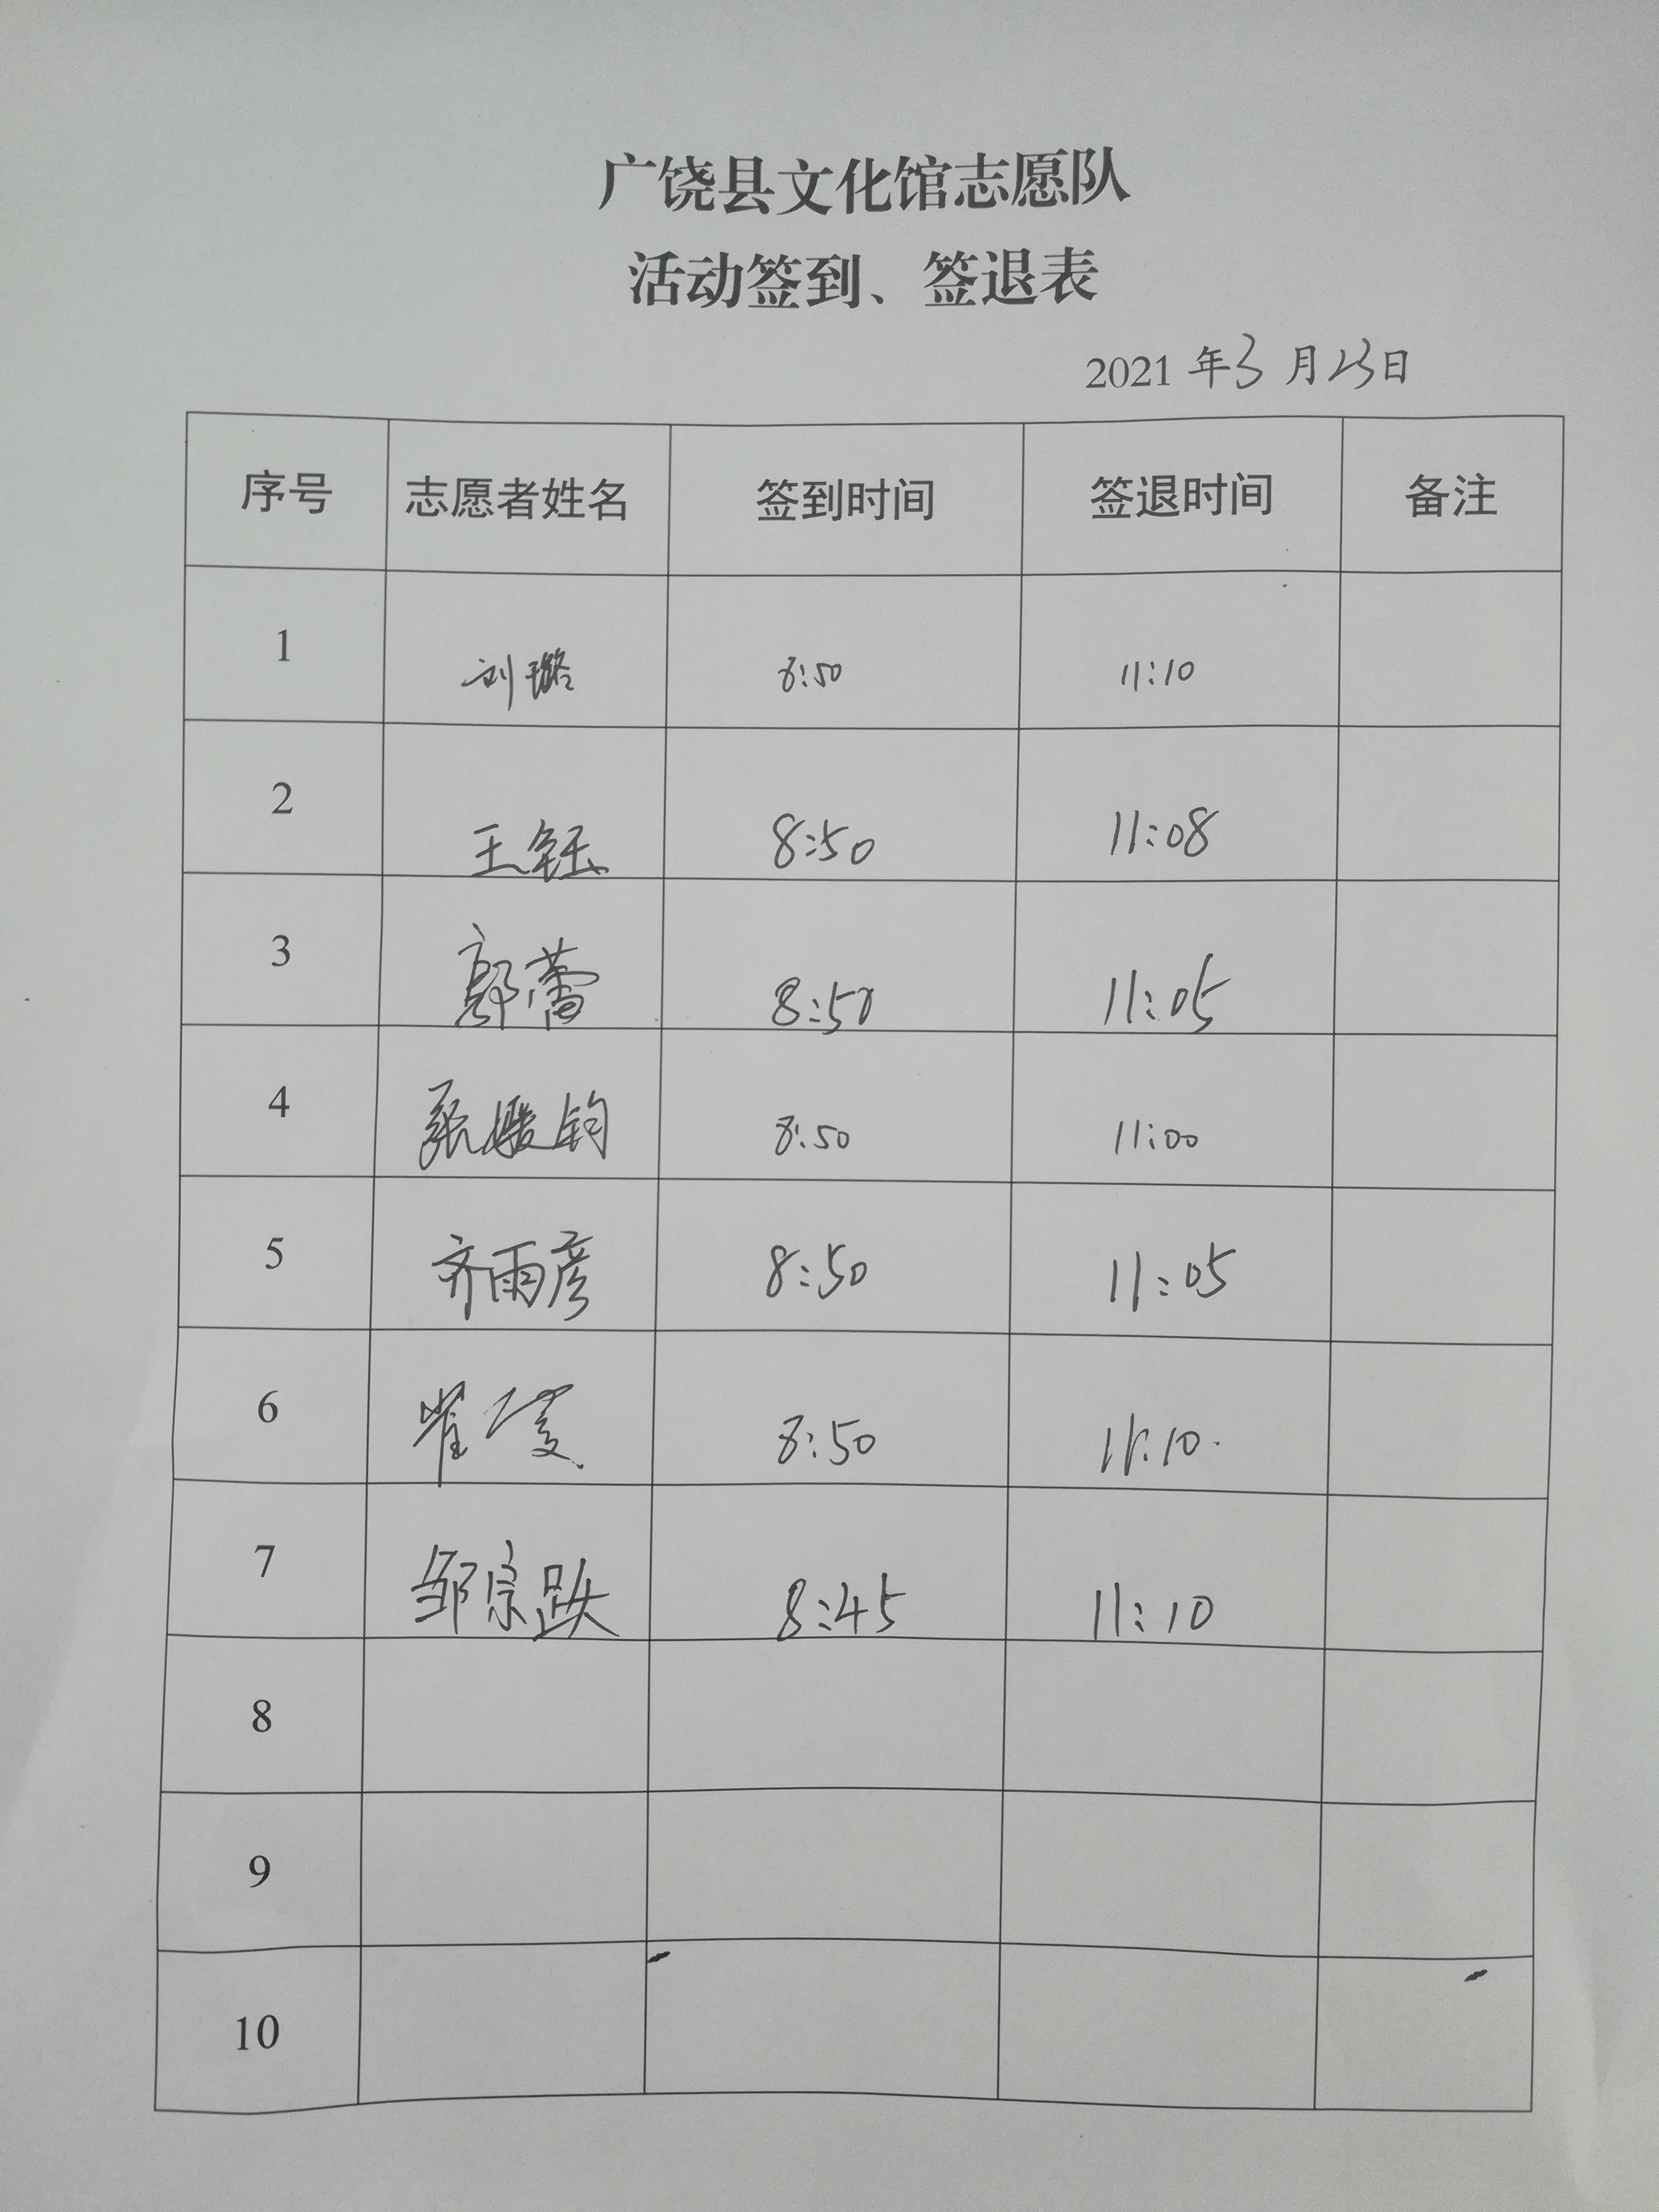 广饶县文化馆志愿队
活动签到、签退表
2021 年 3 月 23 日
序号 志愿者姓名 签到时间 签退时间 备注
1 刘璐 8:50 11:10
2 王钰 8:50 11:08
3 郭蕾 8:50 11:05
4 张 钧 8:50 11:00
5 齐雨彦 8:50 11:05
6 崔 8:50 11:10
7 邹宗跌 8:45 11:10
8
9
10